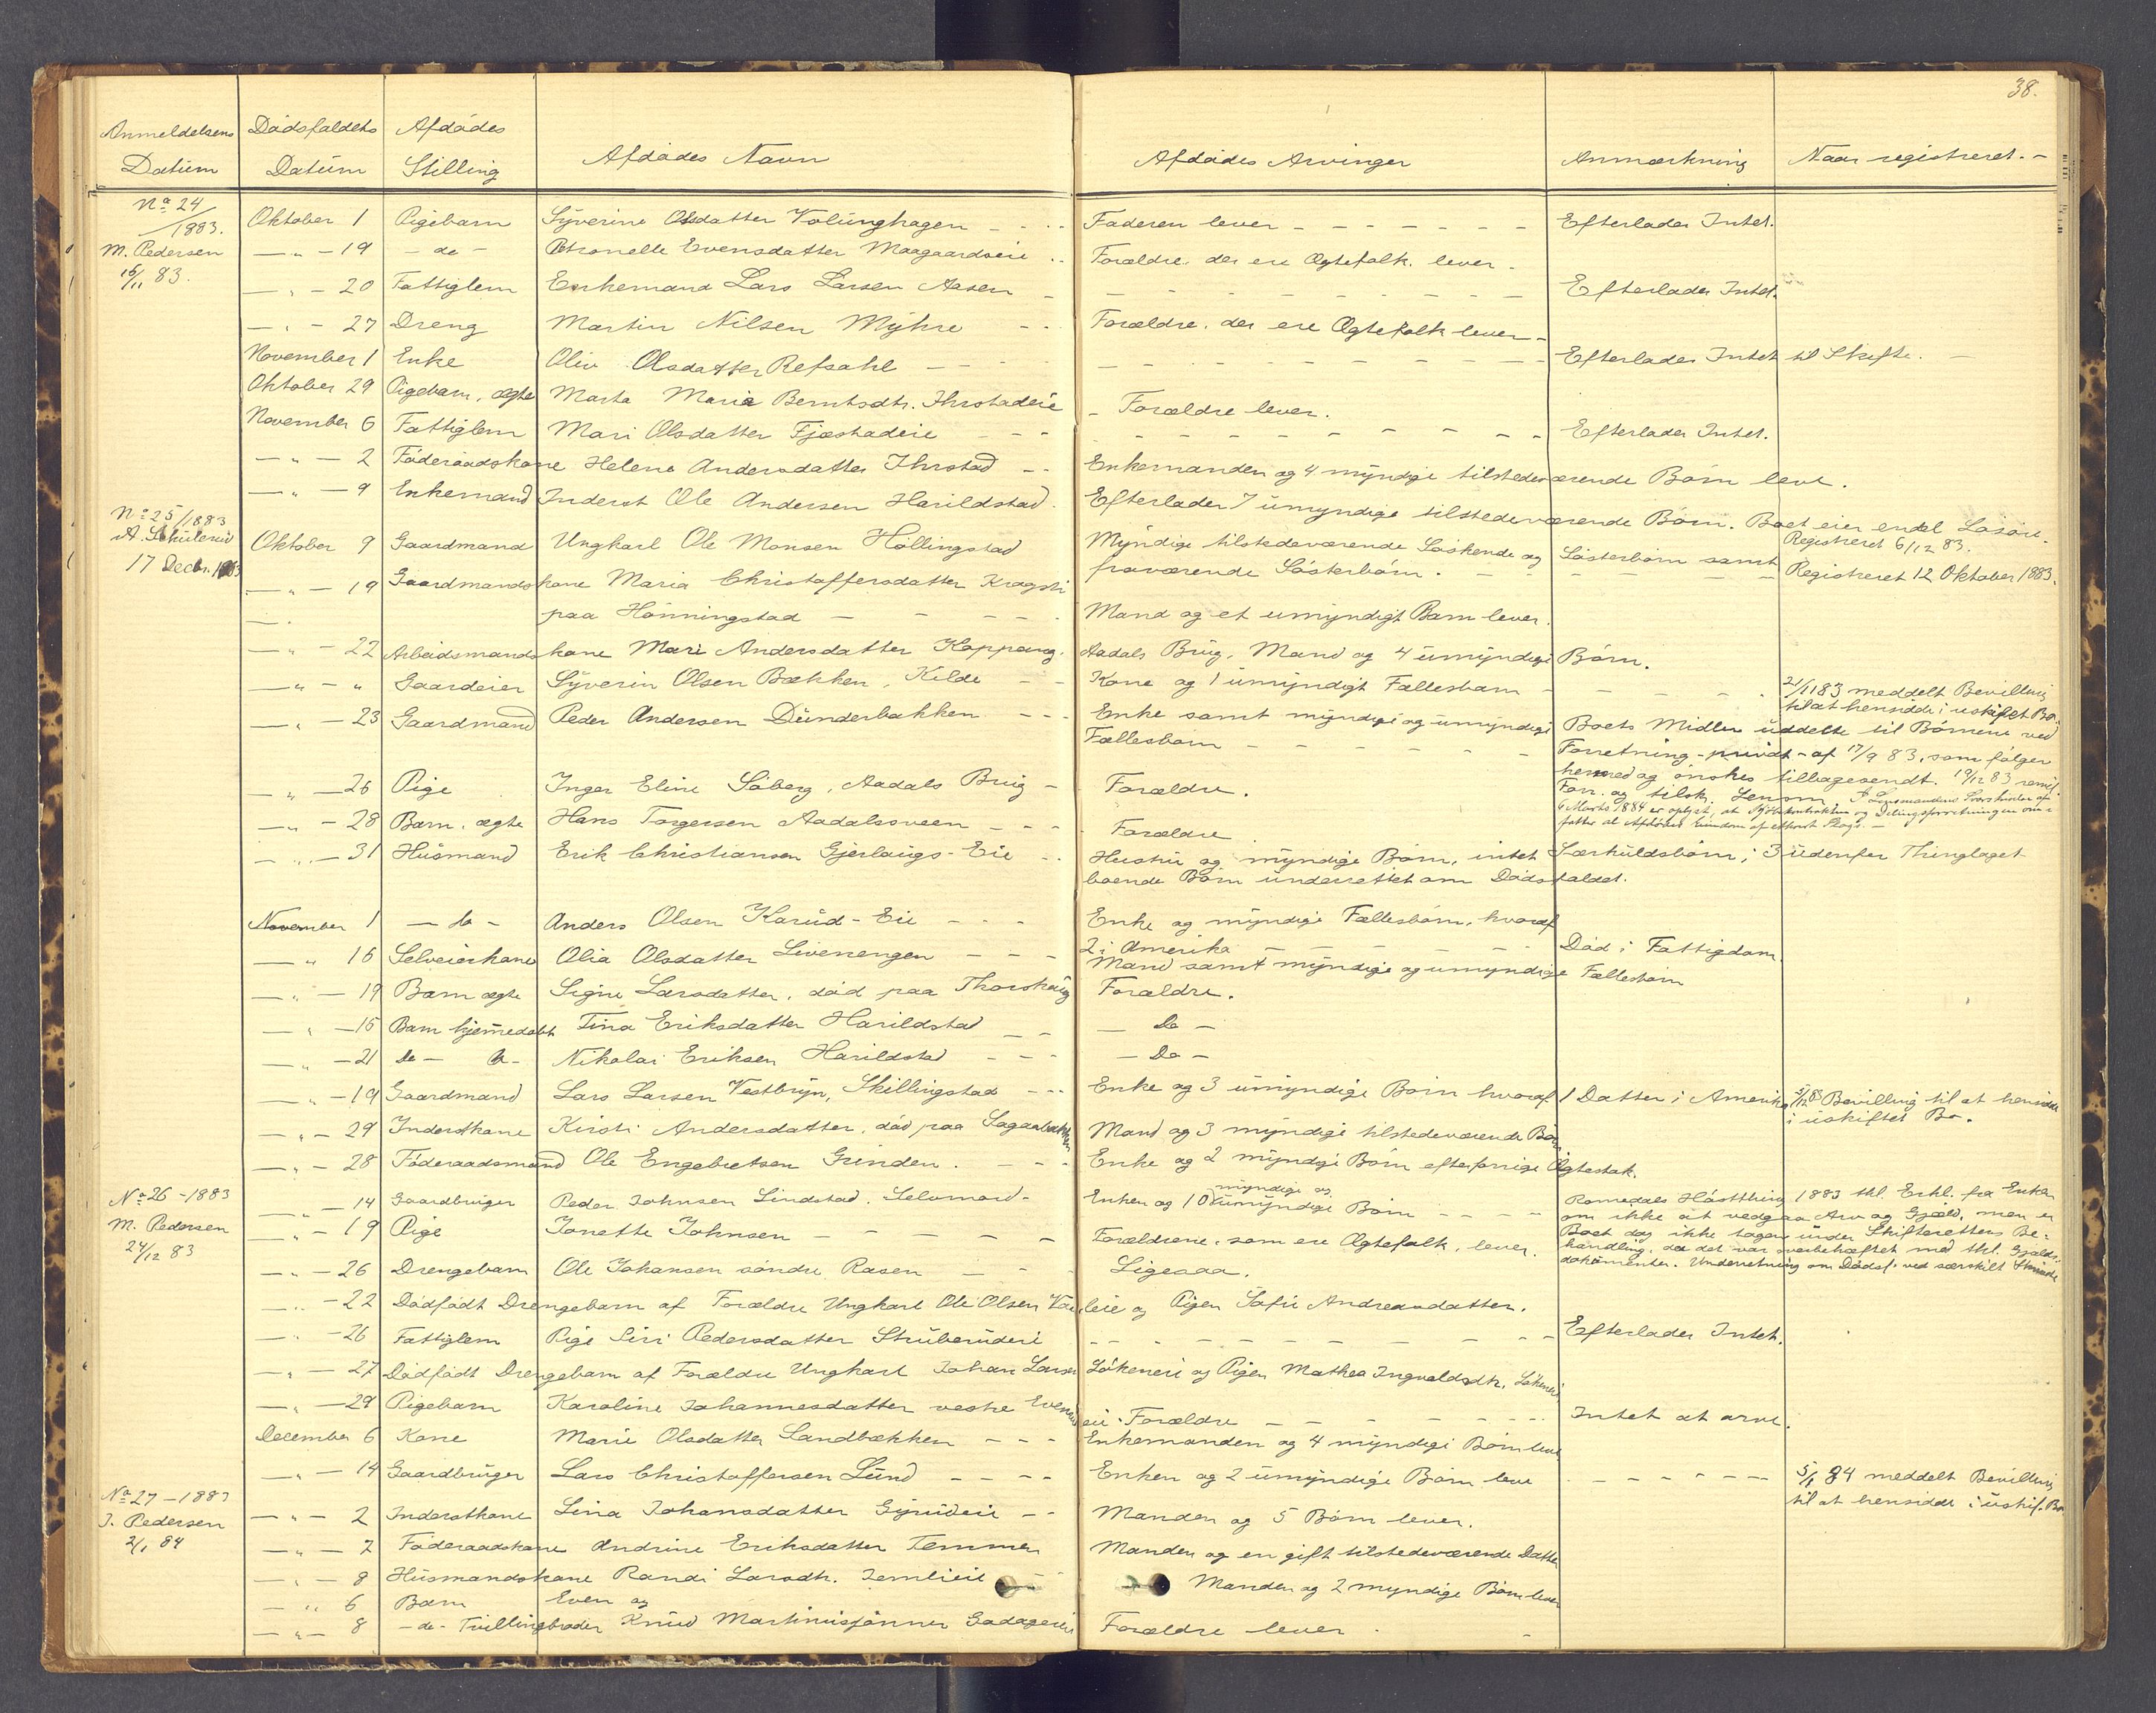 38.
Anmeldelsens Datum Dødsfaldets Datum Afdødes Stilling Afdødes Navn Afdødes Arvinger Anmærkning Naar registreret.-
No 24/1883. Oktober 1 Pigebarn Syverine Olsdatter Volunghagen - - Faderen lever - - - - - - Efterlader Intet.
M. Pedersen — " — 19 — do — Petronelle Evensdatter Maagaardseie - - Forældre, der ere Ægtefolk, lever -
16/11 83. — " — 20 Fattiglem Enkemand Lars Larsen Aasen - - - - - - - Efterlader Intet.
— " — 27 Dreng Martin Nilsen Myhre - - Forældre, der ere Ægtefolk lever -
November 1 Enke Oliv Olsdatter Refsahl - - - - - - - Efterlader Intet til Skifte. -
Oktober 29 Pigebarn, ægte Marta Maria Berntsdtr. Ihrstadeie - Forældre lever.
November 6 Fattiglem Mari Olsdatter Fjæstadeie - - - - - - - - Efterlader Intet.
— " — 2 Føderaadskone Helene Andersdatter Ihrstad - - Enkemanden og 4 myndige tilstedeværende Børn leve.
— " — 9 Enkemand Inderst Ole Andersen Harildstad. Efterlader 7 umyndige tilstedeværende Børn. Boet eier endel Løsøre. Registreret 6/12 83.
No 25/1883
A. Skulerud Oktober 9 Gaardmand Ungkarl Ole Monsen Høllingstad Myndige tilstedeværende Søskende og Søsterbørn samt
17 Decbr. 1883 fraværende Søsterbørn. - - - - - - Registreret 12 Oktober 1883.
— " — 19 Gaardmandskone Maria Christoffersdatter Kragsti
paa Hønningstad - - - - - Mand og et umyndigt Barn lever.
— " — 22 Arbeidsmandskone Mari Andersdatter Koppang. Aadals Brug, Mand og 4 umyndige Børn.
— " — " Gaardeier Syverin Olsen Bækken, Kilde - - Kone og 1 umyndigt Fællesbarn - - - - - 21/11 83 meddelt Bevilling
til at hensidde i uskiftet Bo.
— " — 23 Gaardmand Peder Andersen Dunderbakken - - - Enke samt myndige og umyndige Boets Midler uddelte til Børnene ved
Fællesbørn - - - - - - Forretning - privat - af 17/9 83, som følger
hermed og ønskes tilbagesendt. 19/12 83
— " — 26 Pige Inger Eline Søberg, Aadals Brug - Forældre.
6 Marts 1884 er oplyst, at
— " — 28 Barn, ægte Hans Torgersen Aadalssveen - - - Forældre
— " — 31 Husmand Erik Christiansen Gjerlaugs-Eie - - Hustru og myndige Børn, intet Særkuldsbørn; 3 udenfor Thinglaget
boende Børn underrettet om Dødsfaldet.
November 1 — do — Anders Olsen Karud-Eie - - - Enke og myndige Fællesbørn, hvoraf
2 i Amerika - - - - - Død i Fattigdom
— " 16 Selveierkone Olia Olsdatter Livenengen - - - Mand samt myndige og umyndige Fællesbørn
— " — 19 Barn ægte Signe Larsdatter, død paa Thorshaug Forældre.
— " — 15 Barn hjemmedøbt Tina Eriksdatter Harildstad - - — Do —
— " — 21 do — do — Nikolai Eriksen Harildstad - - - — Do —
— " — 19 Gaardmand Lars Larsen Vestbyn, Skillingstad - - - Enke og 3 umyndige Børn hvoraf 1 Datter i Amerika 5/12 83 Bevilling til at hensidde
i uskiftet Bo.
— " — 29 Inderstkone Kirsti Andersdatter, død paa Sagaabakken Mand og 3 myndige tilstedeværende Børn
— " — 28 Føderaadsmand Ole Engebretsen Grinden. - - - Enke og 2 myndige Børn efter forrige Ægteskab.
No 26-1883 — " — 14 Gaardbruger Peder Johnsen Lindstad. Selvmord- Enken og 10 myndige og umyndige Børn - - - - Romedals Høstthing 1883 skl. Erkl. fra Enken
om ikke at vedgaa Arv og Gjæld, men er
M. Pedersen — " — 19 Pige Jonette Johnsen - - - - - - Forældrene, som ere Ægtefolk, lever. Boet dog ikke tagen under Skifterettens Be-
24/12 83 handling, da det var overbehæftet med skl. Gjælds-
— " — 26 Drengebarn Ole Johansen søndre Rasen - - - Ligesaa. dokumenter. Underretning om Dødsf. ved særskilt
— " — 22 Dødfødt Drengebarn af Forældre Ungkarl Ole Olsen og Pigen Sofie Andreasdatter.
— " — 26 Fattiglem Pige Siri Pedersdatter Struberuderie - - - - - - - Efterlader Intet.
— " — 27 Dødfødt Drengebarn af Forældre Ungkarl Johan Larsen Løkeneie og Pigen Mathea Ingvaldsdtr. Løkeneie
— " — 29 Pigebarn Karoline Johannesdatter vestre Evenrudeie. Forældre - - - - - - Intet at arve.
December 6 Kone Marie Olsdatter Sandbækken - - - Enkemanden og 4 myndige Børn leve
— " — 14 Gaardbruger Lars Christoffersen Lund - - - - Enken og 2 umyndige Børn leve - - - - - - 5/1 84 meddelt Bevilling
No 27-1883 til at hensidde i uskif. Bo
J. Pedersen — " — 2 Inderstkone Lina Johansdatter Gjrudeie - - Manden og 5 Børn lever.
2/1 84 — " — 7 Føderaadskone Andrine Eriksdatter Temmen Manden og en gift tilstedeværende Datter
— " — 8 Husmandskone Randi Larsdtr. Jemlieie - - Manden og 2 myndige Børn lever
— " 6 Barn Even og
— " — 8 — do — Tvillingbroder Knud Martinussønner Gadageseie Forældre lever.